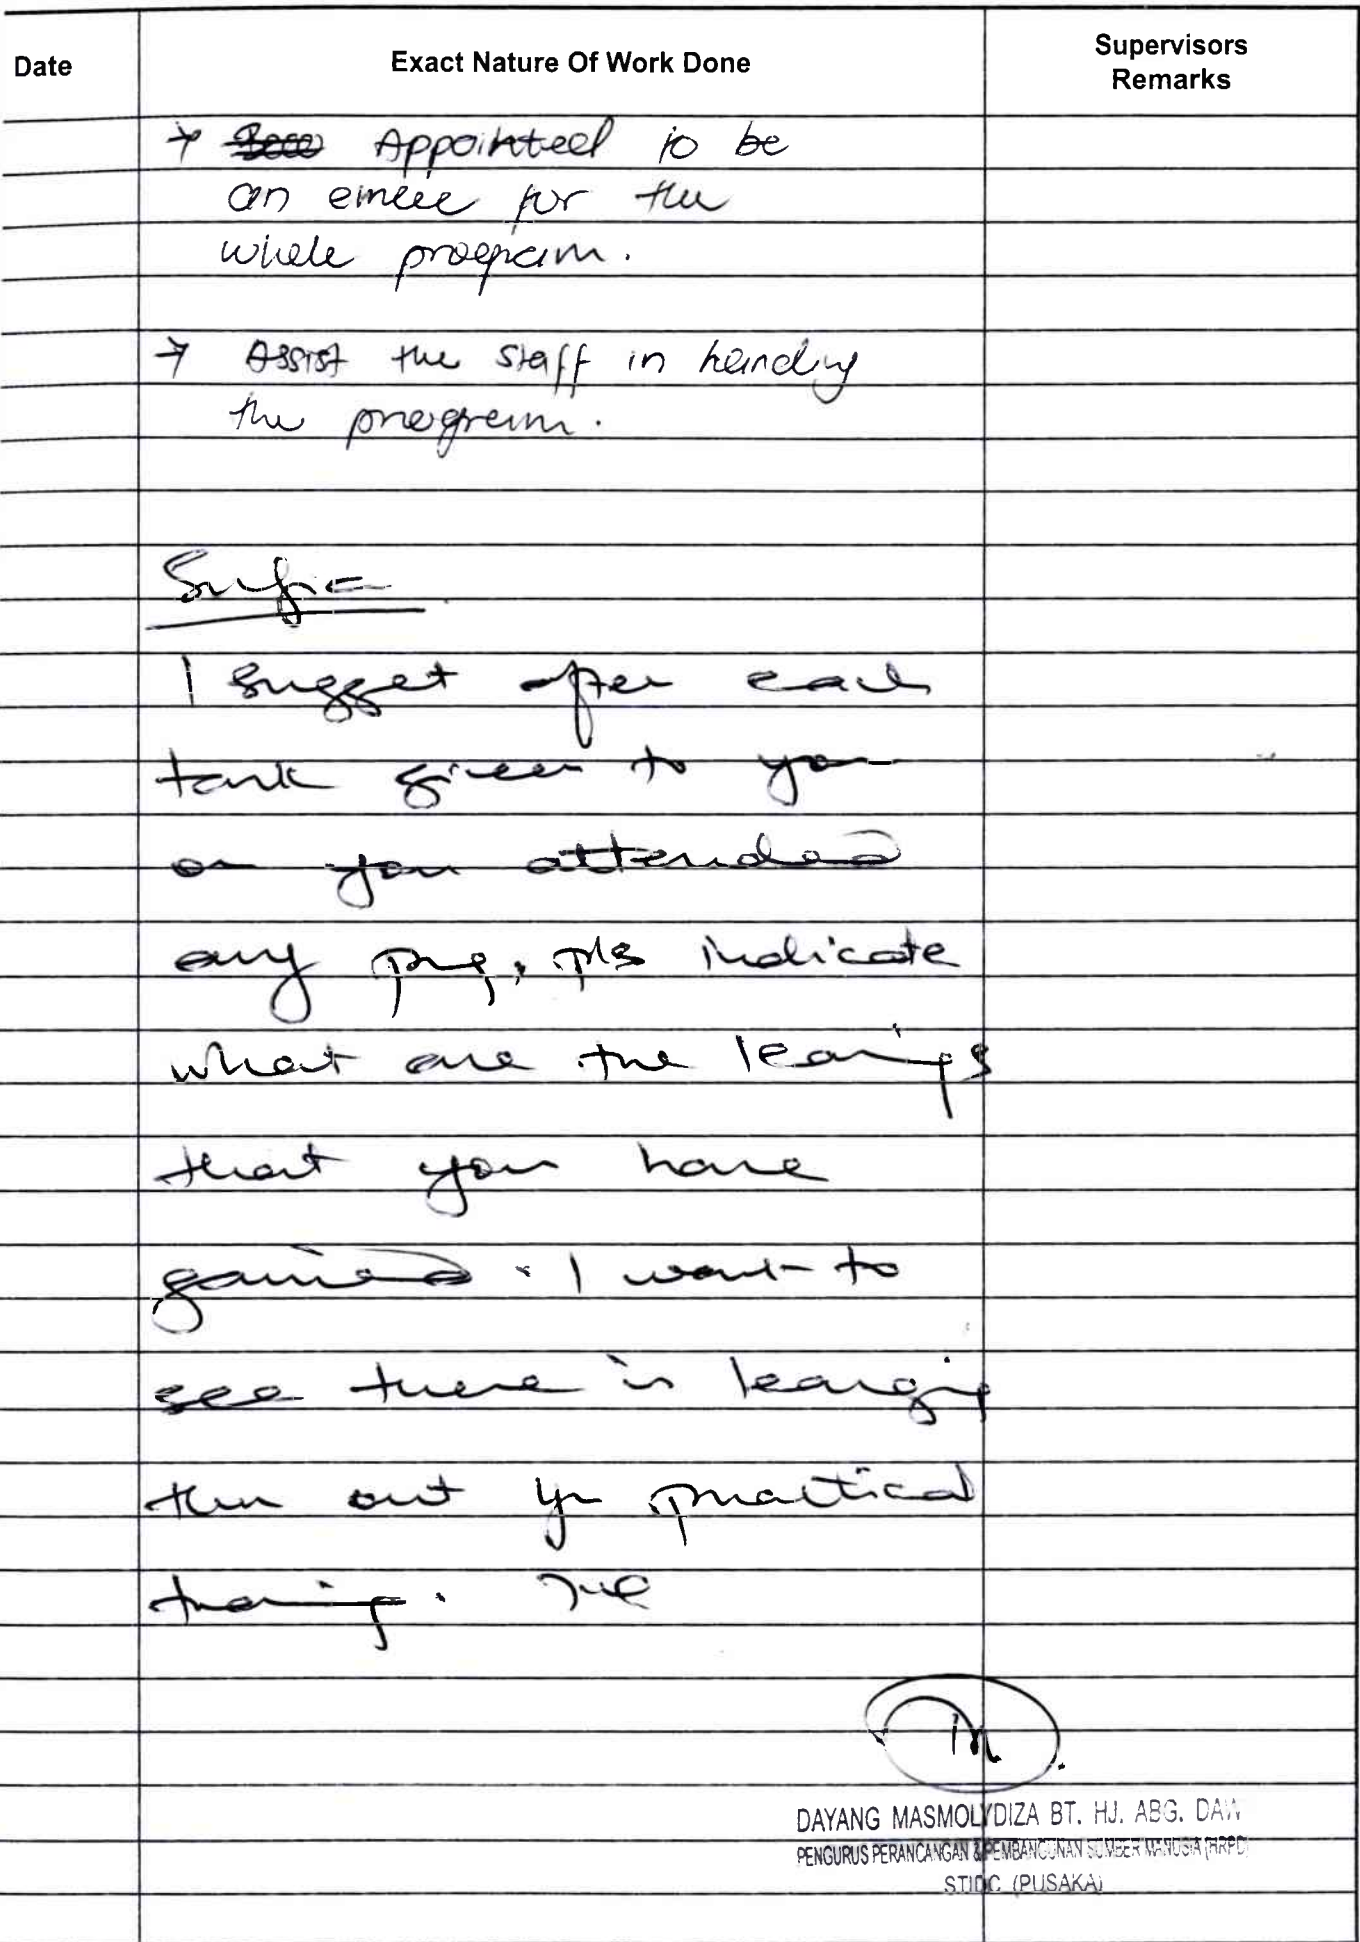 Date
Exact Nature Of Work Done
Supervisors
Remarks
→ Appointed to be
an emcee for the
whole program.
→ Assist the staff in handling
the program.
Sufia
I suggest after each
task given to you
or you attended
any prg, pls indicate
what are the learnings
that you have
gained. I want to
see there is learning
thru out yr practical
training. Tns
DAYANG MASMOLYDIZA BT. HJ. ABG. DAW
PENGURUS PERANCANGAN & PEMBANGUNAN SUMBER MANUSIA (HRPD)
STIDC (PUSAKA)